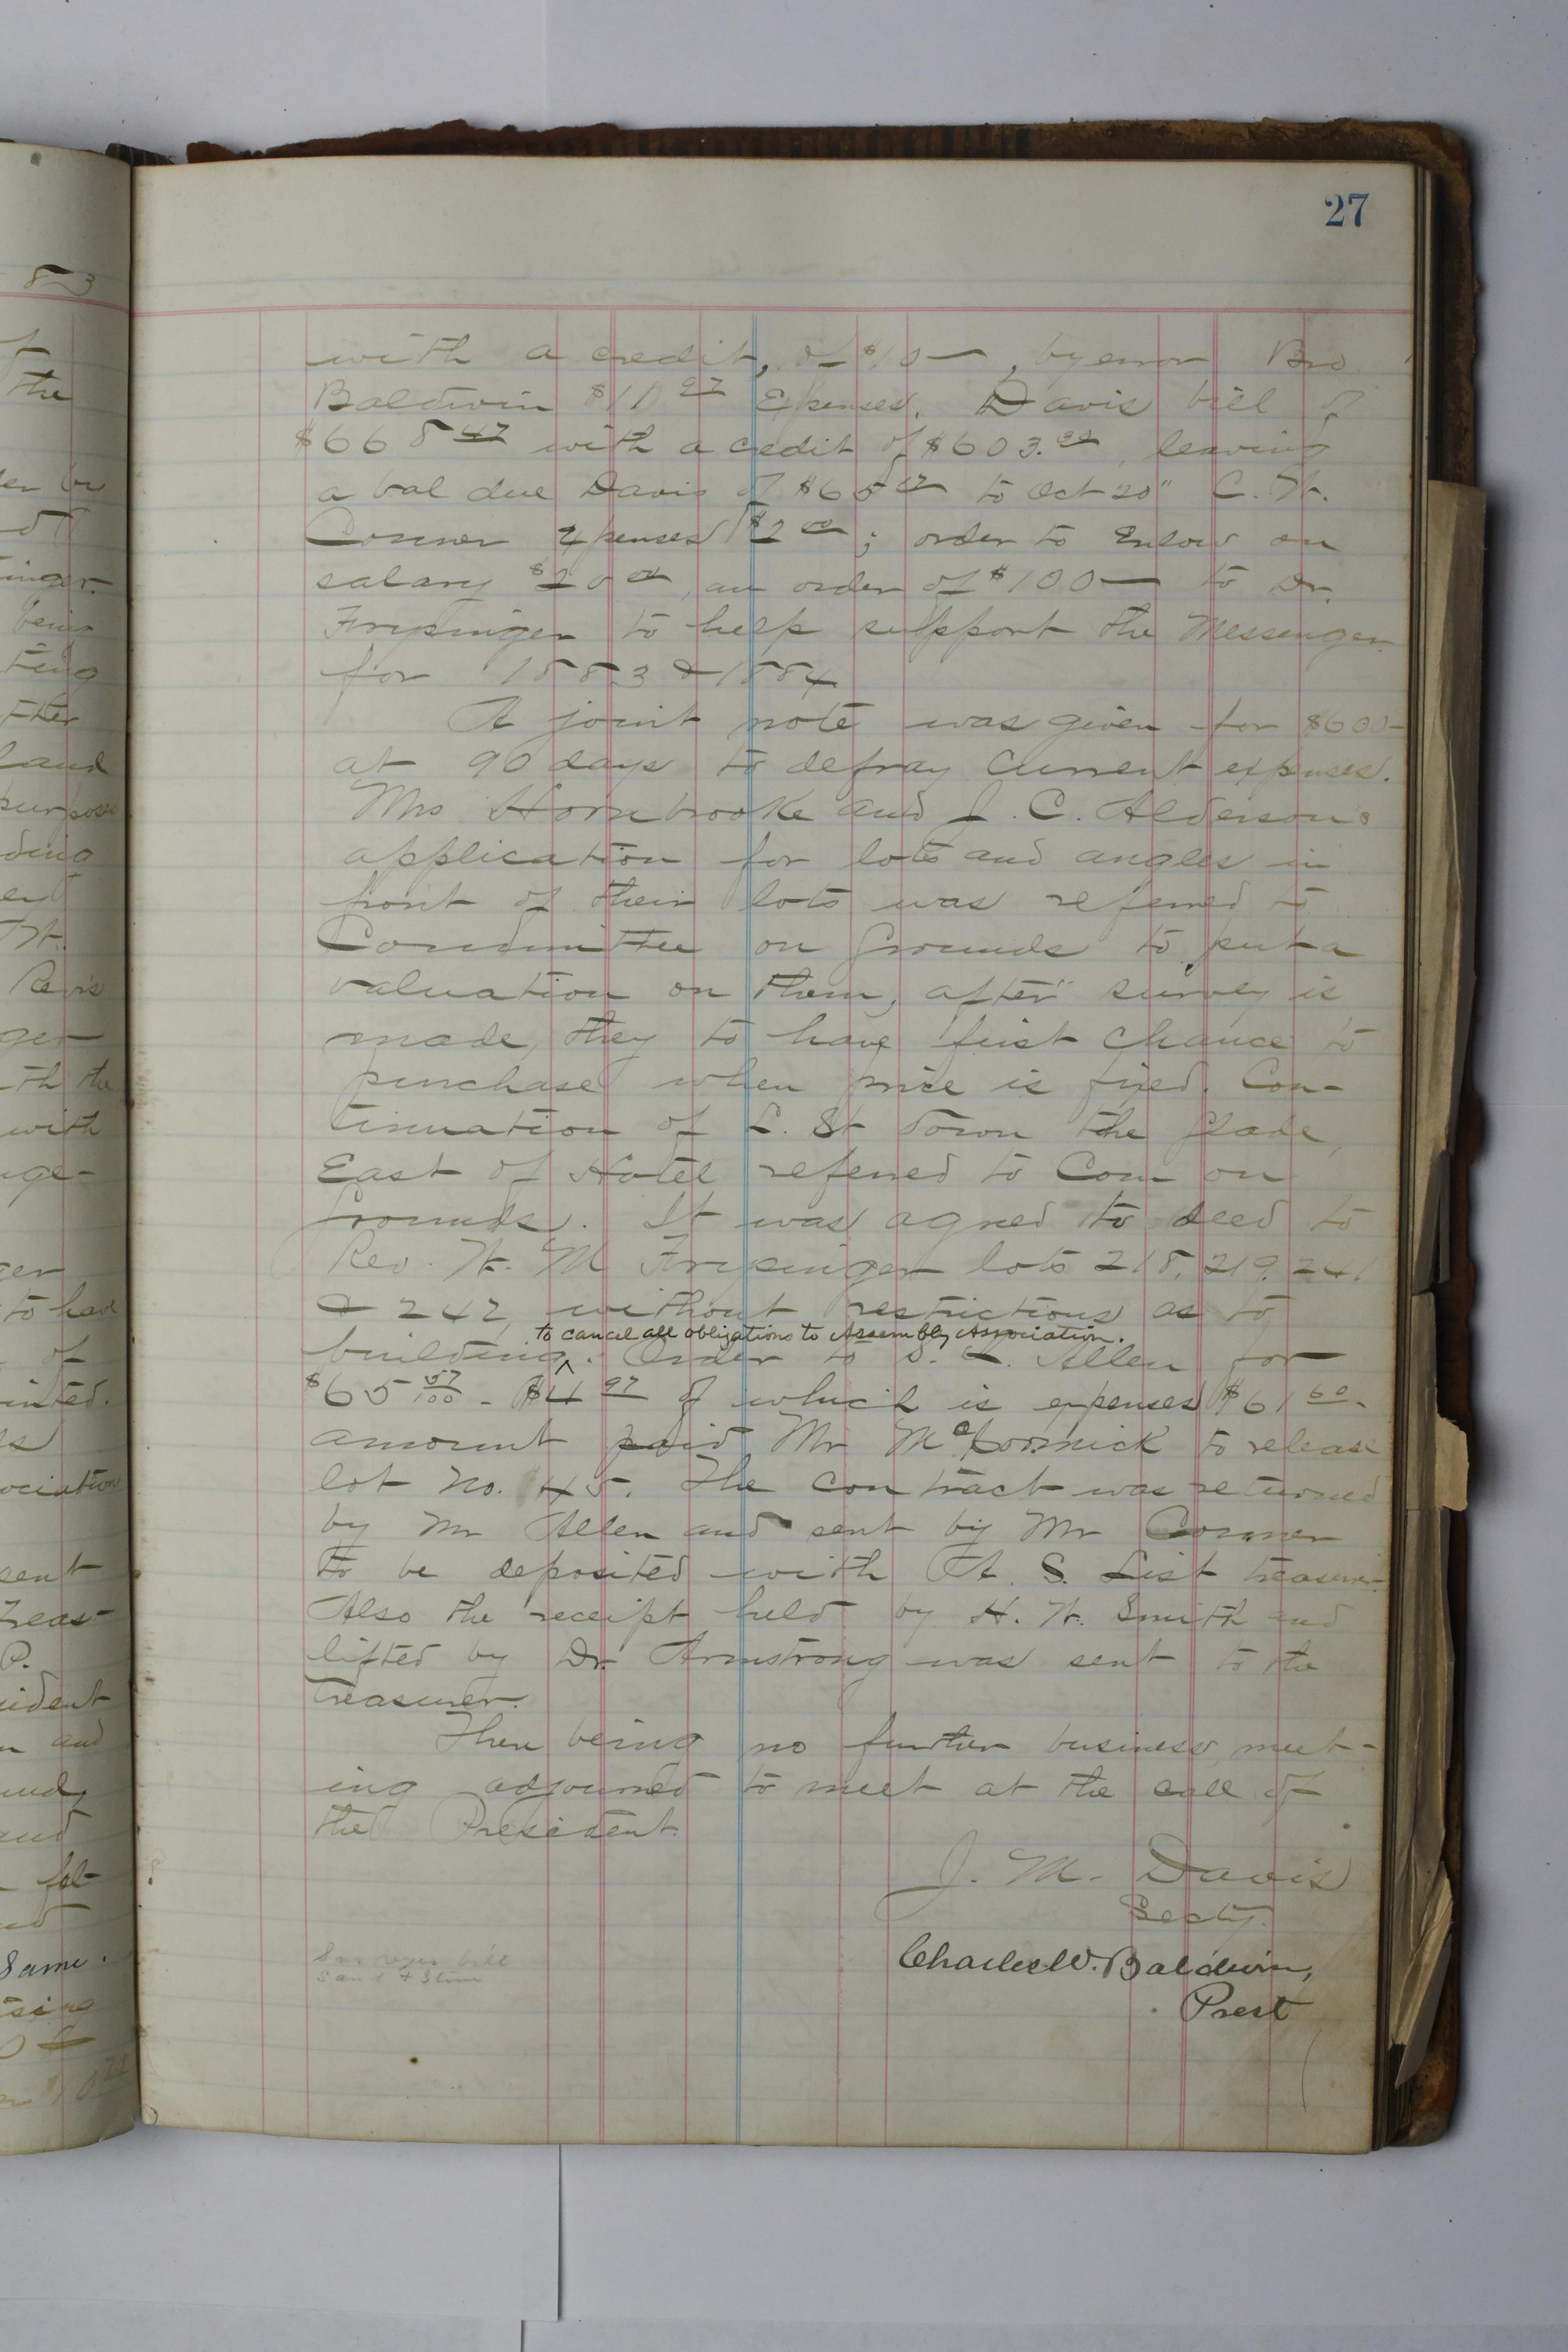 27
with a credit, of $10—, by error Bro
Baldwin $11 97 Expenses. Davis bill of
$668 47 with a credit of $603.30, leaving
a bal due Davis of $65 17 to Oct 20" C. W.
Conner expenses $2 00; order to Enlow on
salary $20 00, an order of $100— to Dr.
Frysinger to help support the Messenger
for 1883 & 1884
A joint note was given for $600—
at 90 days to defray current expenses.
Mrs Hornbrooke and J. C. Alderson's
application for lots and angles in
front of their lots was referred to
Committee on Grounds to put a
valuation on them, after survey is
made, they to have first chance to
purchase when price is fixed. Con-
tinuation of L. St down the Glade,
East of Hotel referred to Com on
Grounds. It was agreed to deed to
Rev. W. M Frysinger lots 218, 219, 241
& 242, without restrictions as to
to cancel all obligations to Assembly Association.
building. Order to D. C. Allen for
$65 57/100 - $4 97 of which is expenses $61 60.
amount paid Mr McCormick to release
lot No. 45. The contract was returned
by Mr Allen and sent by Mr Conner
to be deposited with A. S. List treasurer.
Also the receipt held by H. W. Smith and
lifted by Dr. Armstrong was sent to the
Treasurer.
There being no further business, meet-
ing adjourned to meet at the call of
the President.
J. M. Davis
Secty.
Charles W. Baldwin,
Prest